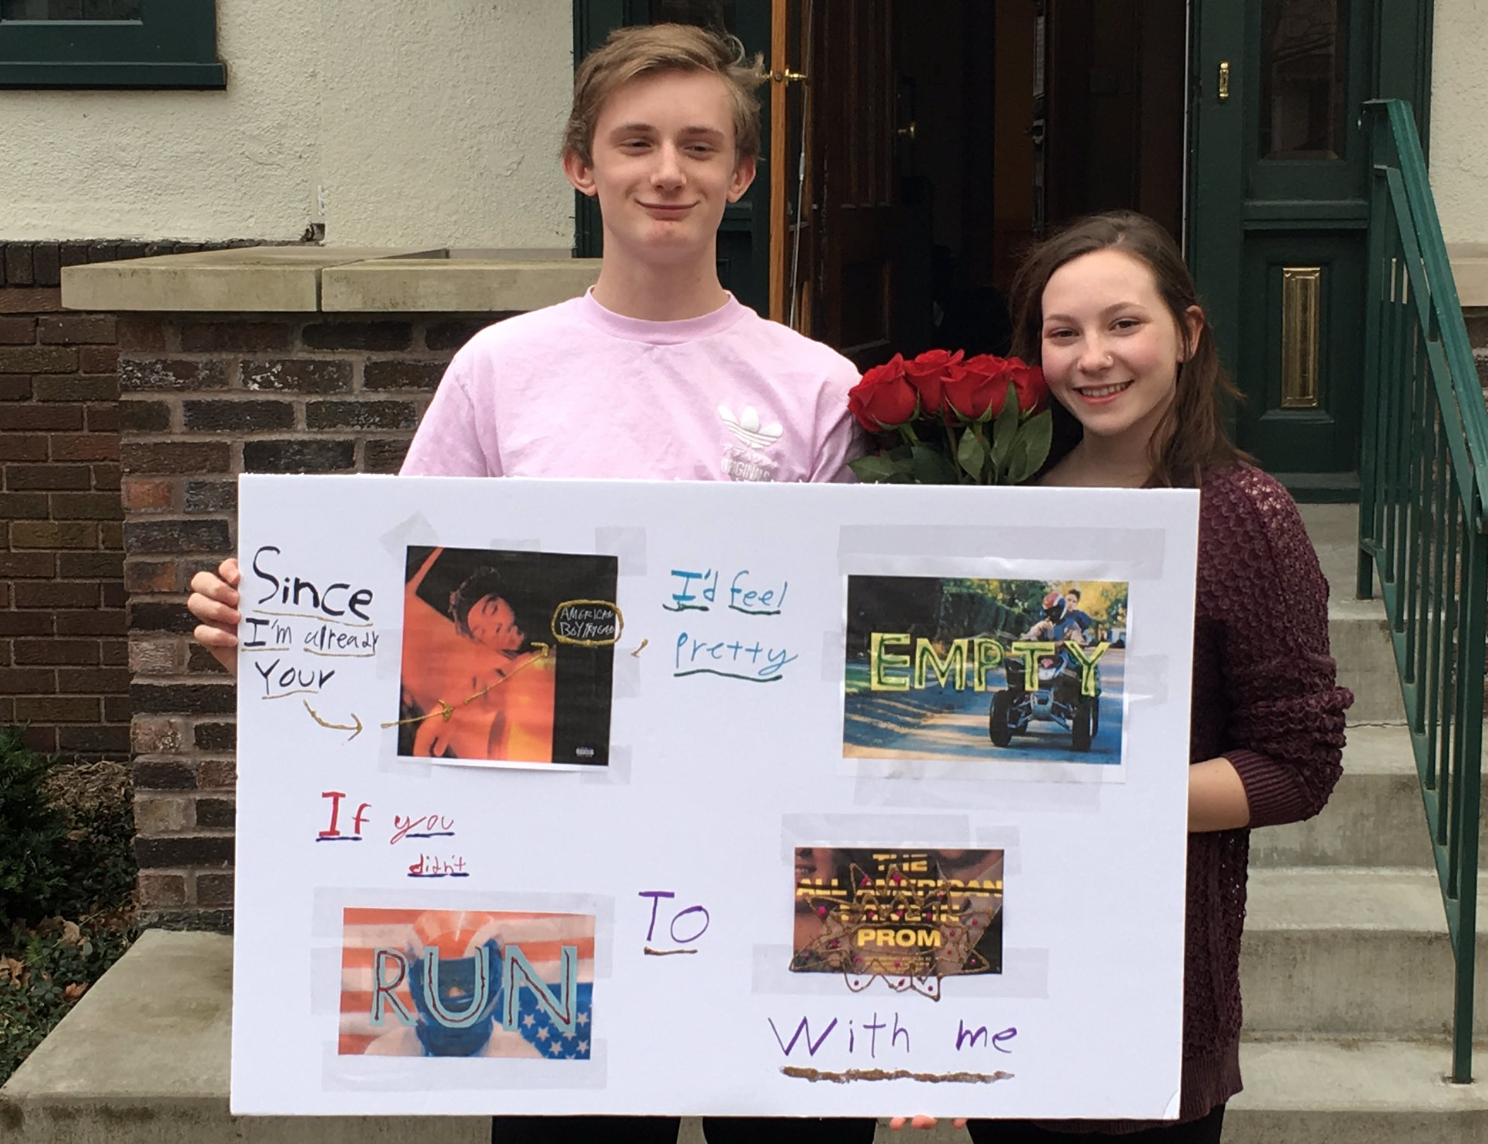 Since
I'm already
Your
AMERICAN
BOYFRIEND
I'd feel
Pretty
EMPTY
If you
didn't
RUN
TO
THE
ALL AMERICAN
PROM
With me